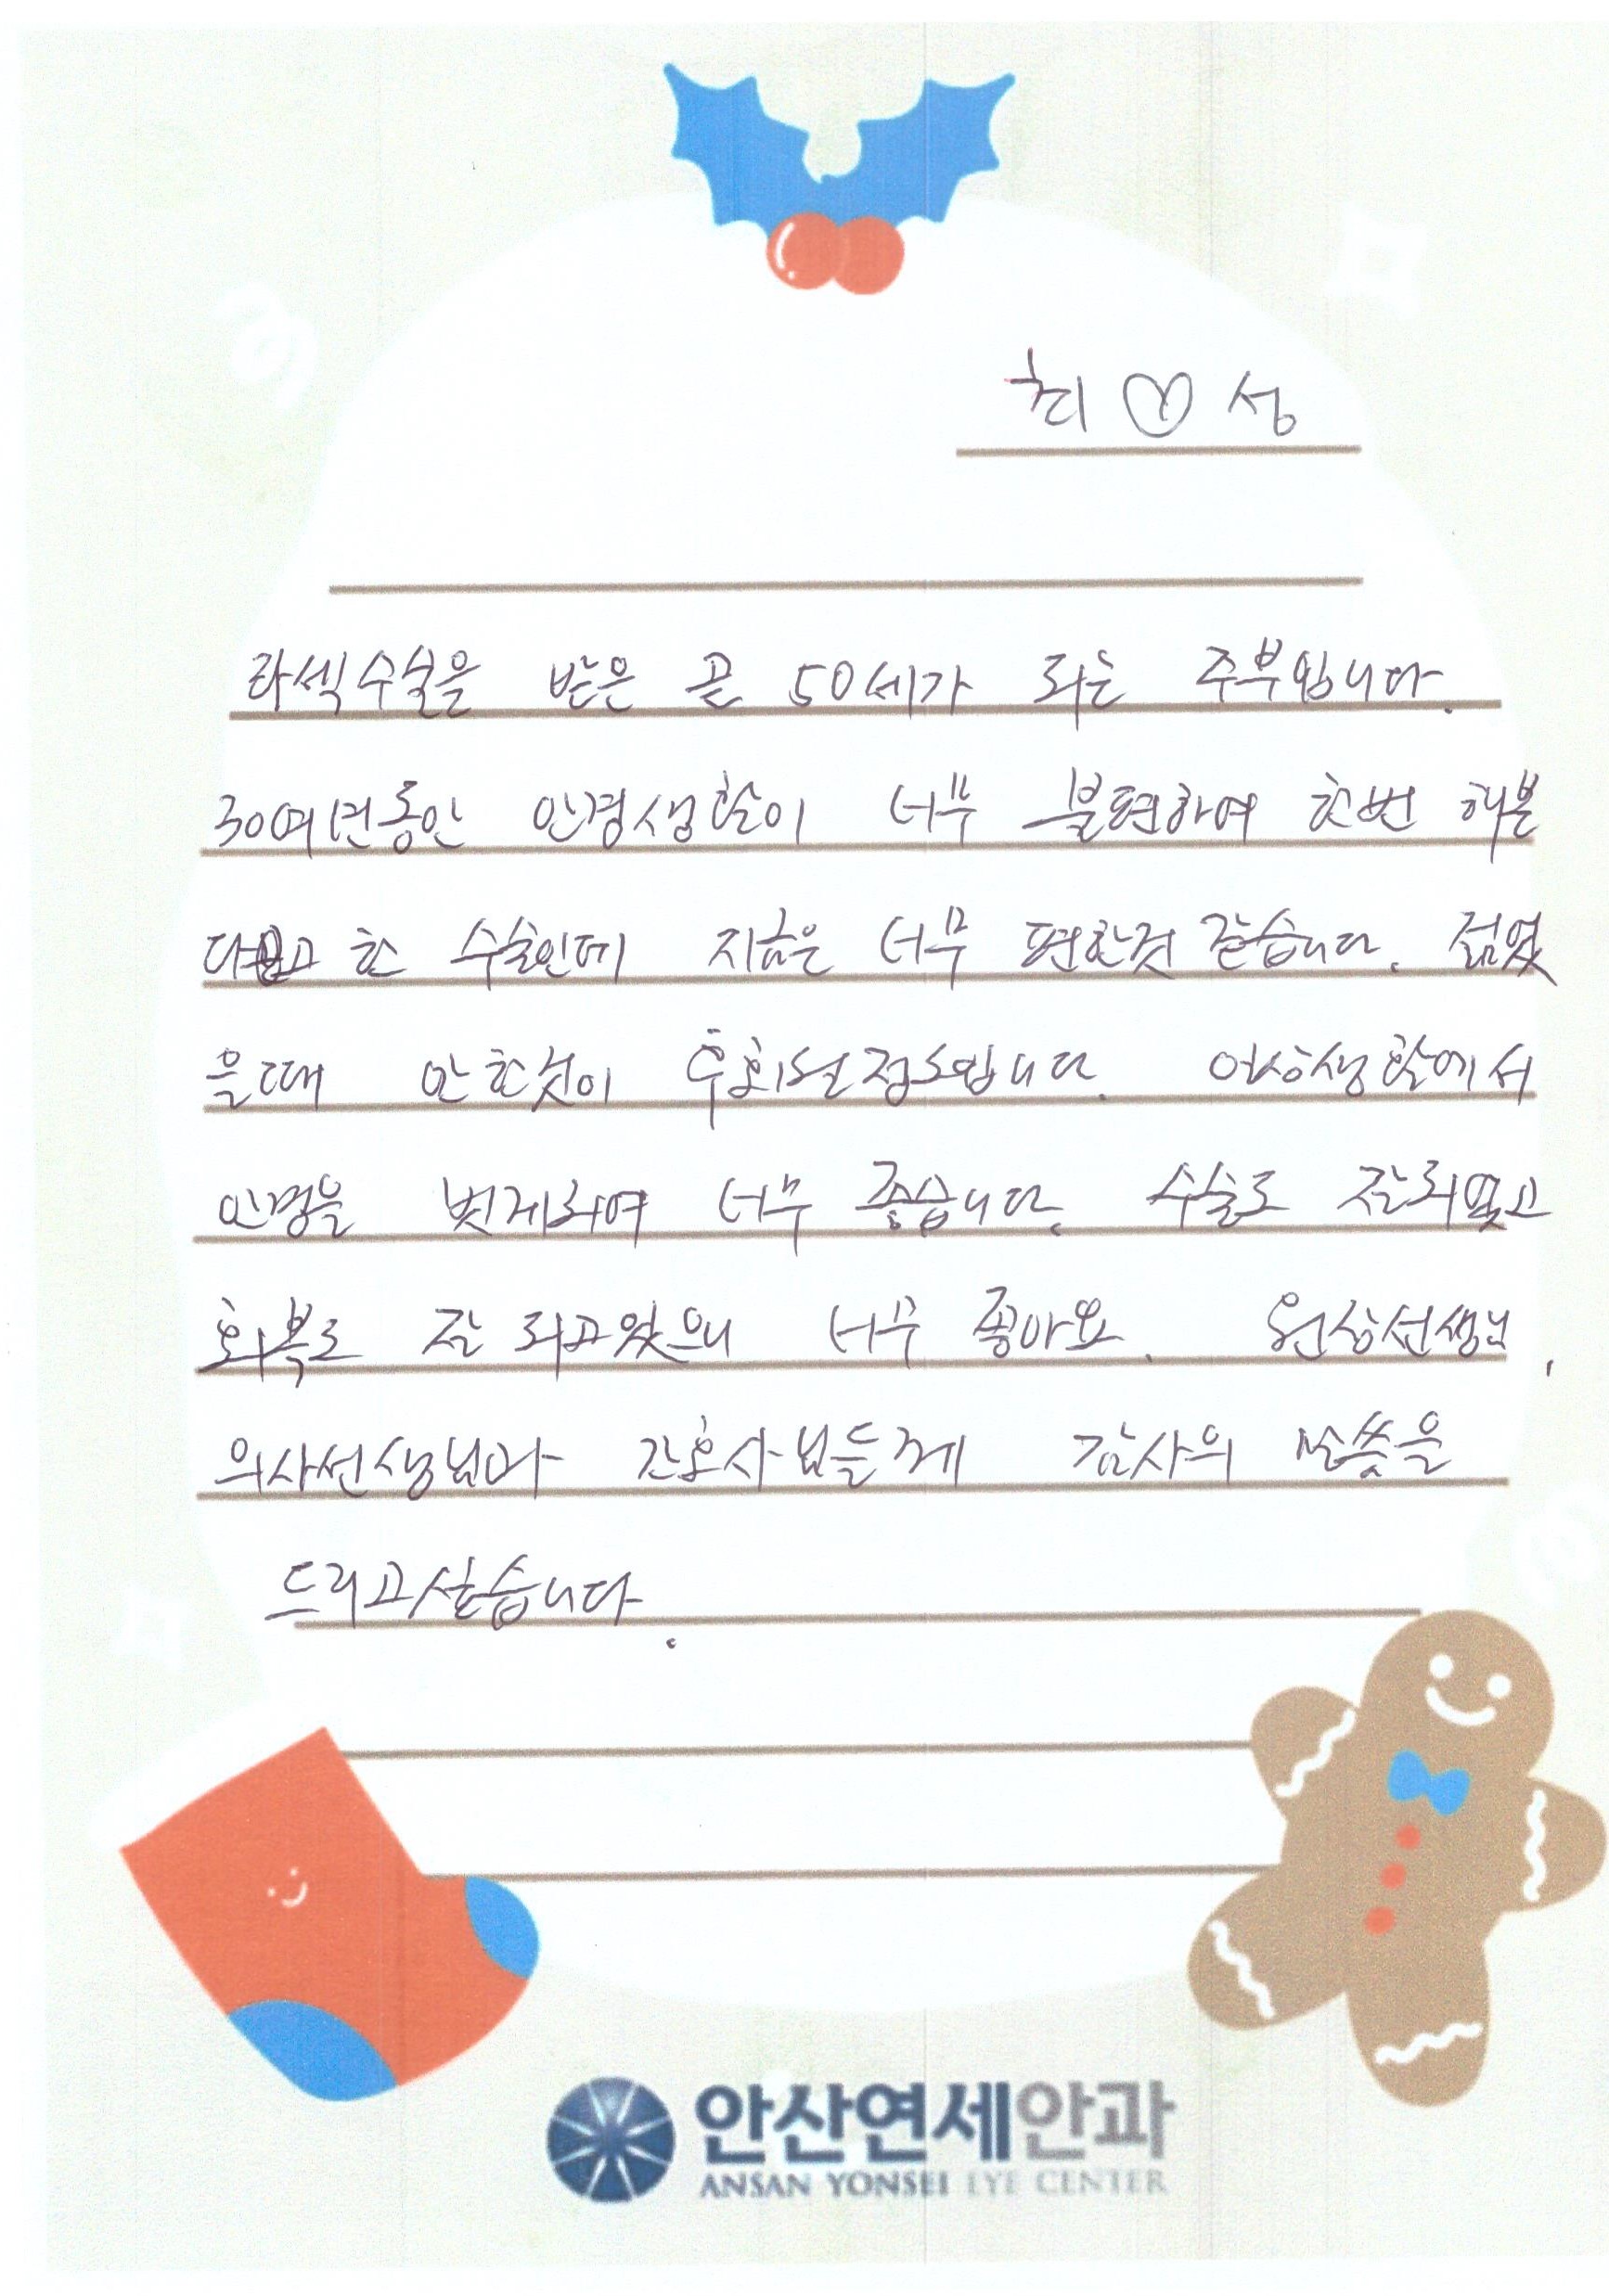 최♡성
라섹수술을 받은 곧 50세가 되는 주부입니다.
30여년동안 안경생활이 너무 불편하여 한번 해본
다고 한 수술인데 지금은 너무 편한것 같습니다. 젊었
을때 안한것이 후회될정도입니다. 일상생활에서
안경을 벗게되어 너무 좋습니다. 수술도 잘되었고
회복도 잘 되고있으니 너무 좋아요. 원장선생님,
의사선생님과 간호사님들께 감사의 말씀을
드리고싶습니다.
안산연세안과
ANSAN YONSEI EYE CENTER